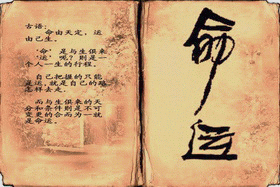 古语：
命由天定，运
由己生。
‘命’是与生俱来
‘运’呢？则是一
个人一生的行程。
自己把握的只能
是运，就是自己的路
怎样去走。
而与生俱来的天
分和条件则是不可
变更的合而为一就
是命运。
命
运